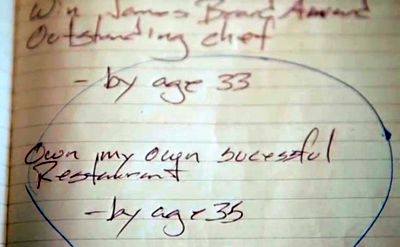 Win James Beard Award
Outstanding chef
- by age 33
Own my own sucessful
Restaurant
- by age 35